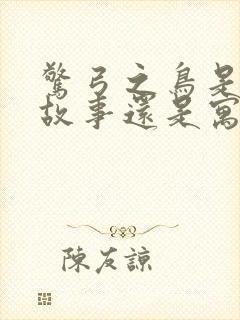 驚弓之鳥是
故事還是寓
陳友諒